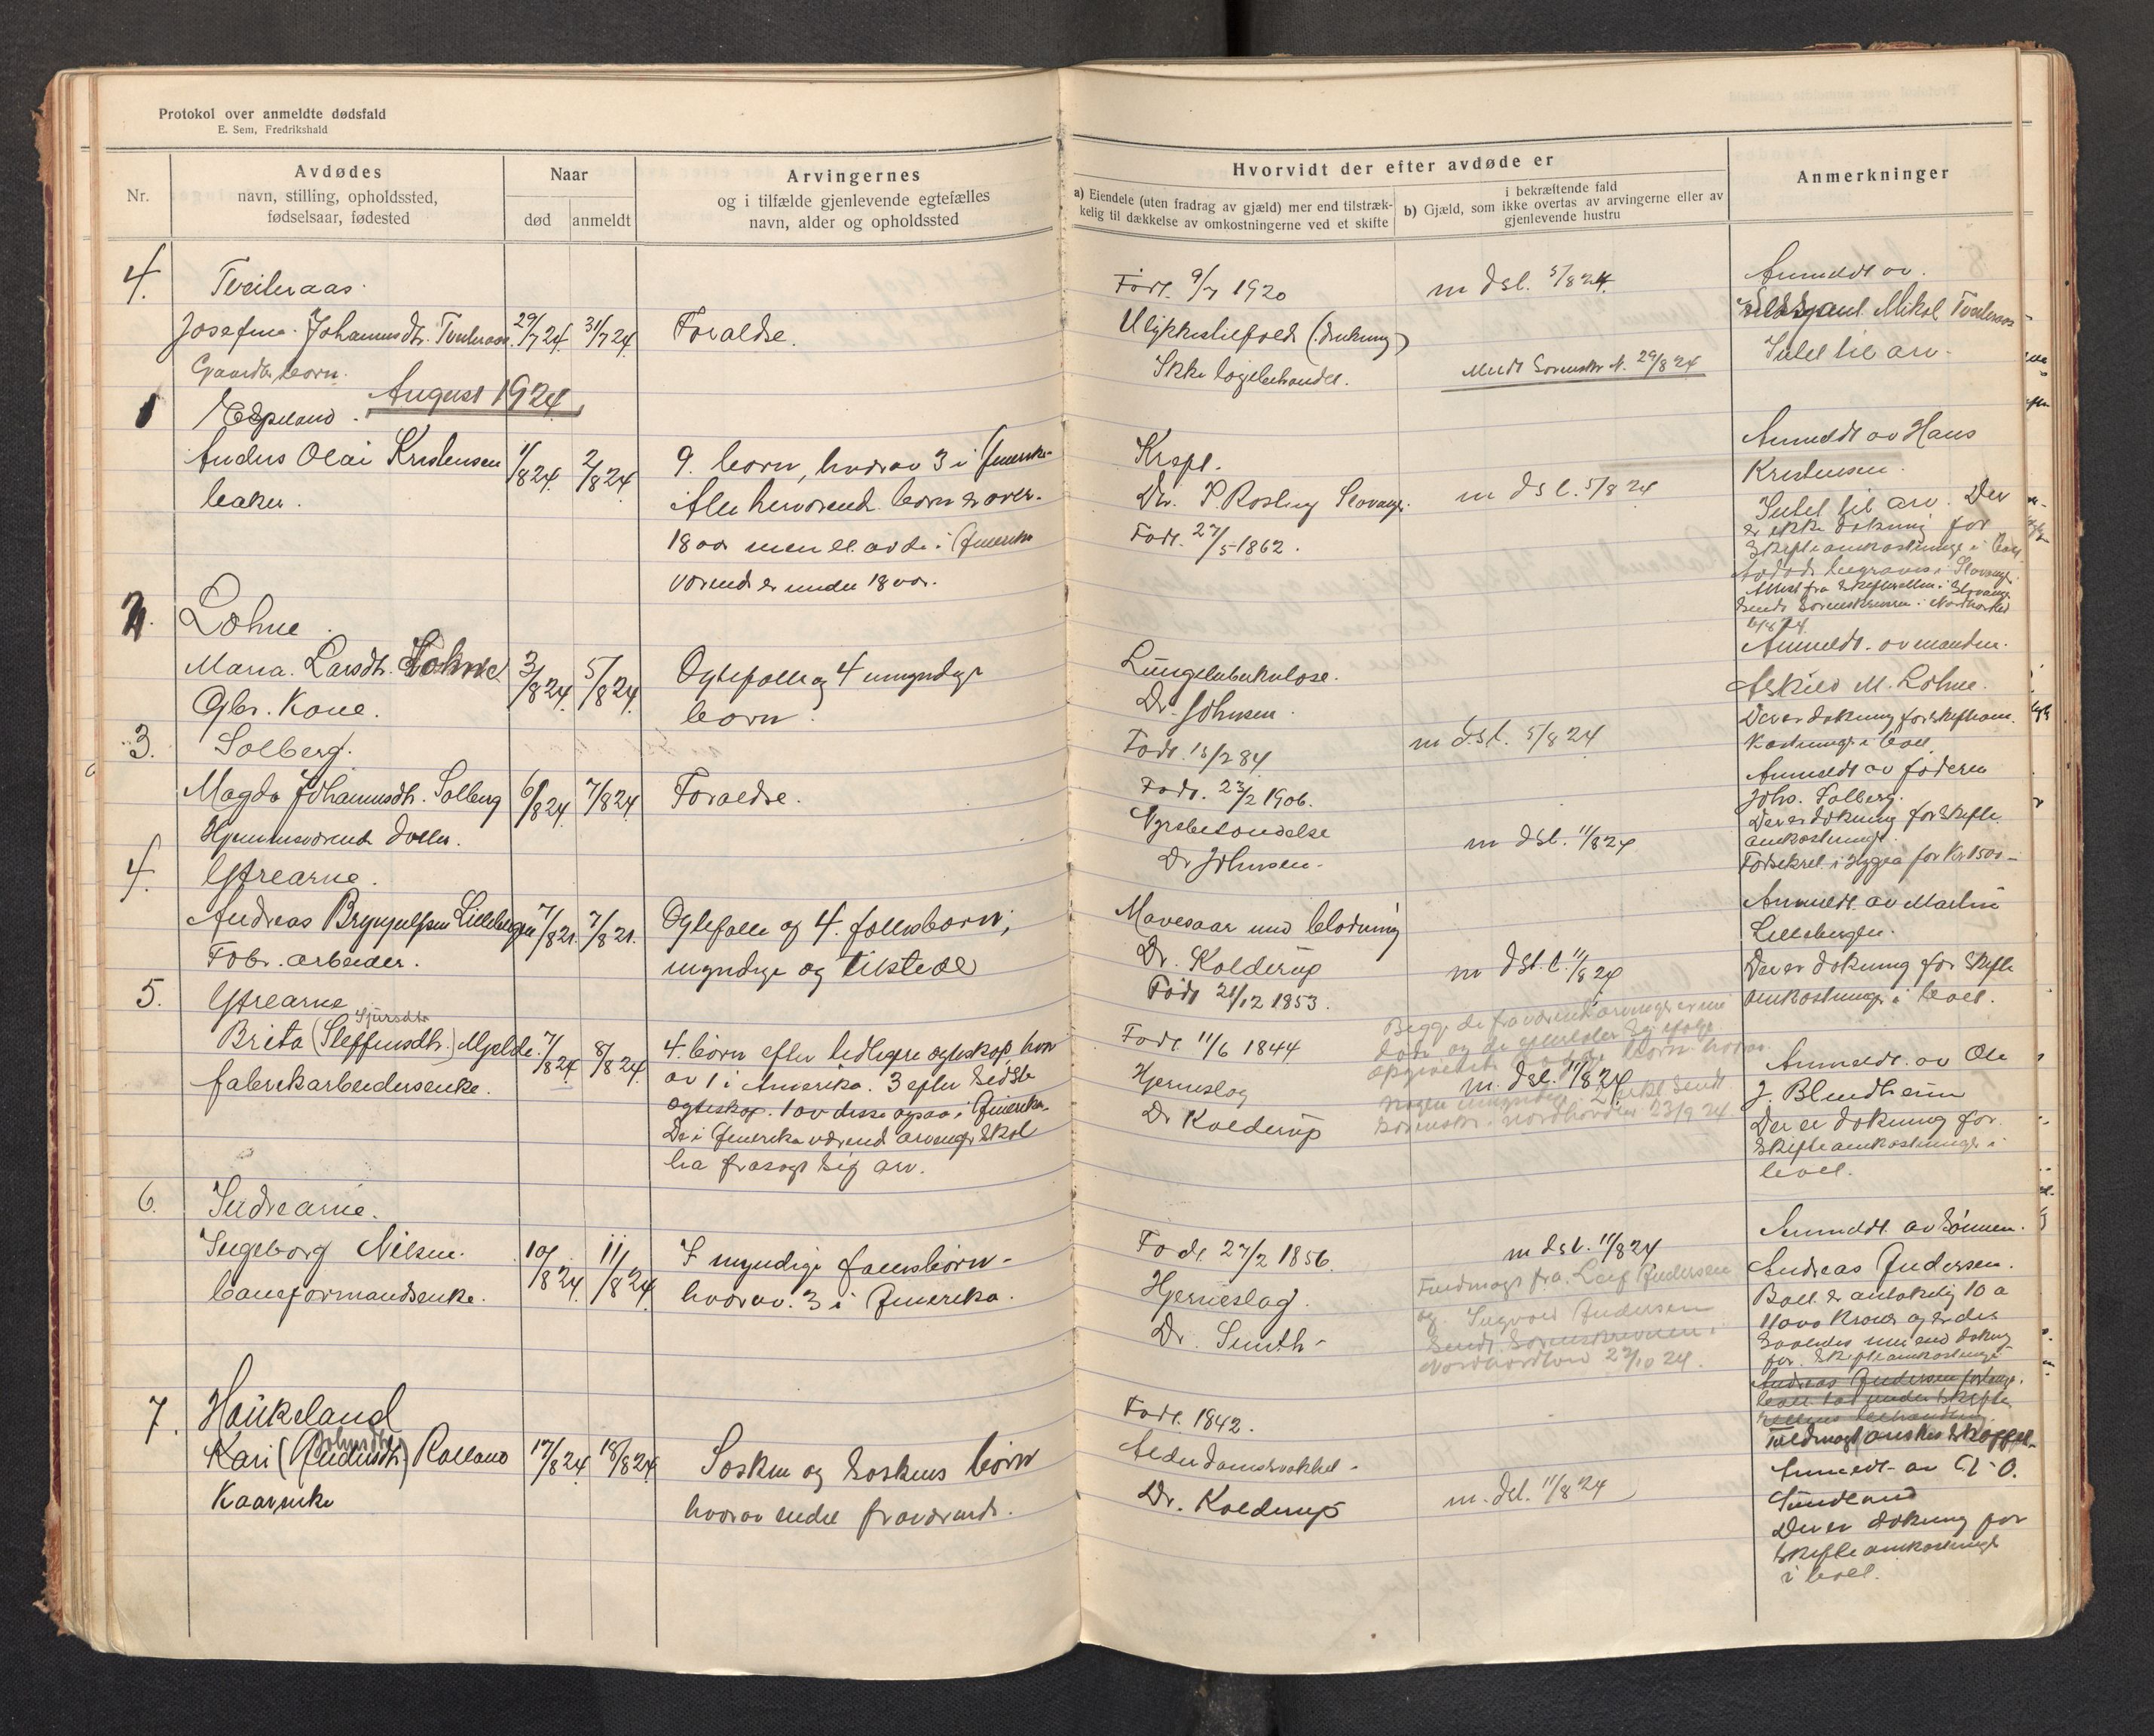 Protokol over anmeldte dødsfald
E. Sem, Fredrikshald
Nr.
Avdødes
navn, stilling, opholdssted,
fødselsaar, fødested
Naar
død
anmeldt
Arvingernes
og i tilfælde gjenlevende egtefælles
navn, alder og opholdssted
Hvorvidt der efter avdøde er
a) Eiendele (uten fradrag av gjæld) mer end tilstræk-
kelig til dækkelse av omkostningerne ved et skifte
i bekræftende fald
b) Gjæld, som ikke overtas av arvingerne eller av
gjenlevende hustru
Anmerkninger
4.
Tveiteraas.
Josefine Johannesdtr. Tveiteraas
Gaardbr. barn.
29/7 24.
31/7 24.
Forældre.
Født 9/7 1920
Ulykkestilfælde (drukning)
Ikke lægebehandlet.
m dsl. 5/8 24
Meldt Sorenskr. N. 29/8 24
Anmeldt av
Mikal Tveiteraas
Intet til arv.
August 1924
1
Espeland.
Anders Olai Kristensen
baker.
1/8 24.
2/8 24
9. børn, hvorav 3 i Amerika
Alle herværende børn er over
18 aar men et av de i Amerika
værende er under 18 aar.
Kræft.
Dr. P. Stavanger.
Født 27/5 1862.
m dsl. 5/8 24
Anmeldt av Hans
Kristensen.
Intet til arv. Der
er ikke dækning for
skifteomkostninger i boet
Avdøde begraves i Stavanger.
Attest fra skifteretten i Stavanger
sendt Sorenskriveren i Nordhordland
2.
Lohne.
Maria Larsdtr. Lohne
Gbr. Kone.
3/8 24.
5/8 24.
Egtefælle og 4 umyndige
børn.
Lungetuberkulose.
Dr. Johnsen.
Født 15/2 84
m dsl. 5/8 24
Anmeldt av manden
Askild M. Lohne.
Der er dækning for skifteom
kostninger i boet.
3.
Solberg.
Magda Johannesdtr. Solberg
Hjemmeværende datter.
6/8 24.
7/8 24.
Forældre.
Født. 23/2 1906.
Nyrebetændelse
Dr Johnsen.
m dsl. 11/8 24
Anmeldt av faderen
Johs. Solberg.
Der er dækning for skifte
omkostninger.
Forsikret i Hygea for Kr 1500 –
4.
Ytrearne.
Andreas Brynjulfsen Lillebergen
Fabr. arbeider.
7/8 21.
7/8 21.
Egtefælle og 4. fællesbørn,
myndige og tilstede
Mavesaar med blødning
Dr. Kolderup
Født 21/12 1853.
m dsl. 11/8 24
Anmeldt av Martin
Lillebergen.
Der er dækning for skifte
omkostninger i boet.
5.
Ytrearne
Sjursdtr.
Brita (Steffensdtr.) Mjelde.
fabrikarbeidersenke.
7/8 24.
8/8 24.
4. børn efter tidligere egteskap, hvor
av 1 i Amerika. 3 efter sidste
egteskap. 1 av disse ogsaa i Amerika.
De i Amerika værende arvinger skal
ha frasagt sig arv.
Født 11/6 1844
Hjerneslag
Dr Kolderup
Begge de fraværende arvinger er nu
døde og de efterlater sig ifølge
m. dsl. 11/8 24
Sorenskr. i Nordhordland 23/9 24
Anmeldt av Ole
J. Blindheim
Der er dækning for
skifteomkostninger i
boet.
6.
Indrearne.
Ingeborg Nilsen.
baneformandsenke.
10/8 24.
11/8 24.
7 myndige fællesbørn –
hvorav. 3 i Amerika.
Født 27/2 1856.
Hjerneslag.
Dr. Smith –
m dsl. 11/8 24
Fuldmagt fra Leif Andersen
og Ingvald Andersen
sendt Sorenskriveren i
Nordhordland 22/10 24.
Anmeldt av sønnen.
Andreas Andersen.
Boet er antakelig 10 a
11000 kroner og er der
saaledes mer end dækning
for skifteomkostninger
Andreas Andersen forlanger
boet tat under skifte
rettens behandling.
Fuldmagt ønskes skaffet.
7.
Haukeland
Kari (Andersdtr.) Rolland
Kaarenke
17/8 24
18/8 24.
Søsken og søskens børn
hvorav endel fraværende.
Født. 1842.
Alderdomssvakhet.
Dr. Kolderup
m. dsl. 11/8 24
Anmeldt av
Sundland
Der er dækning for
skifteomkostninger
i boet.